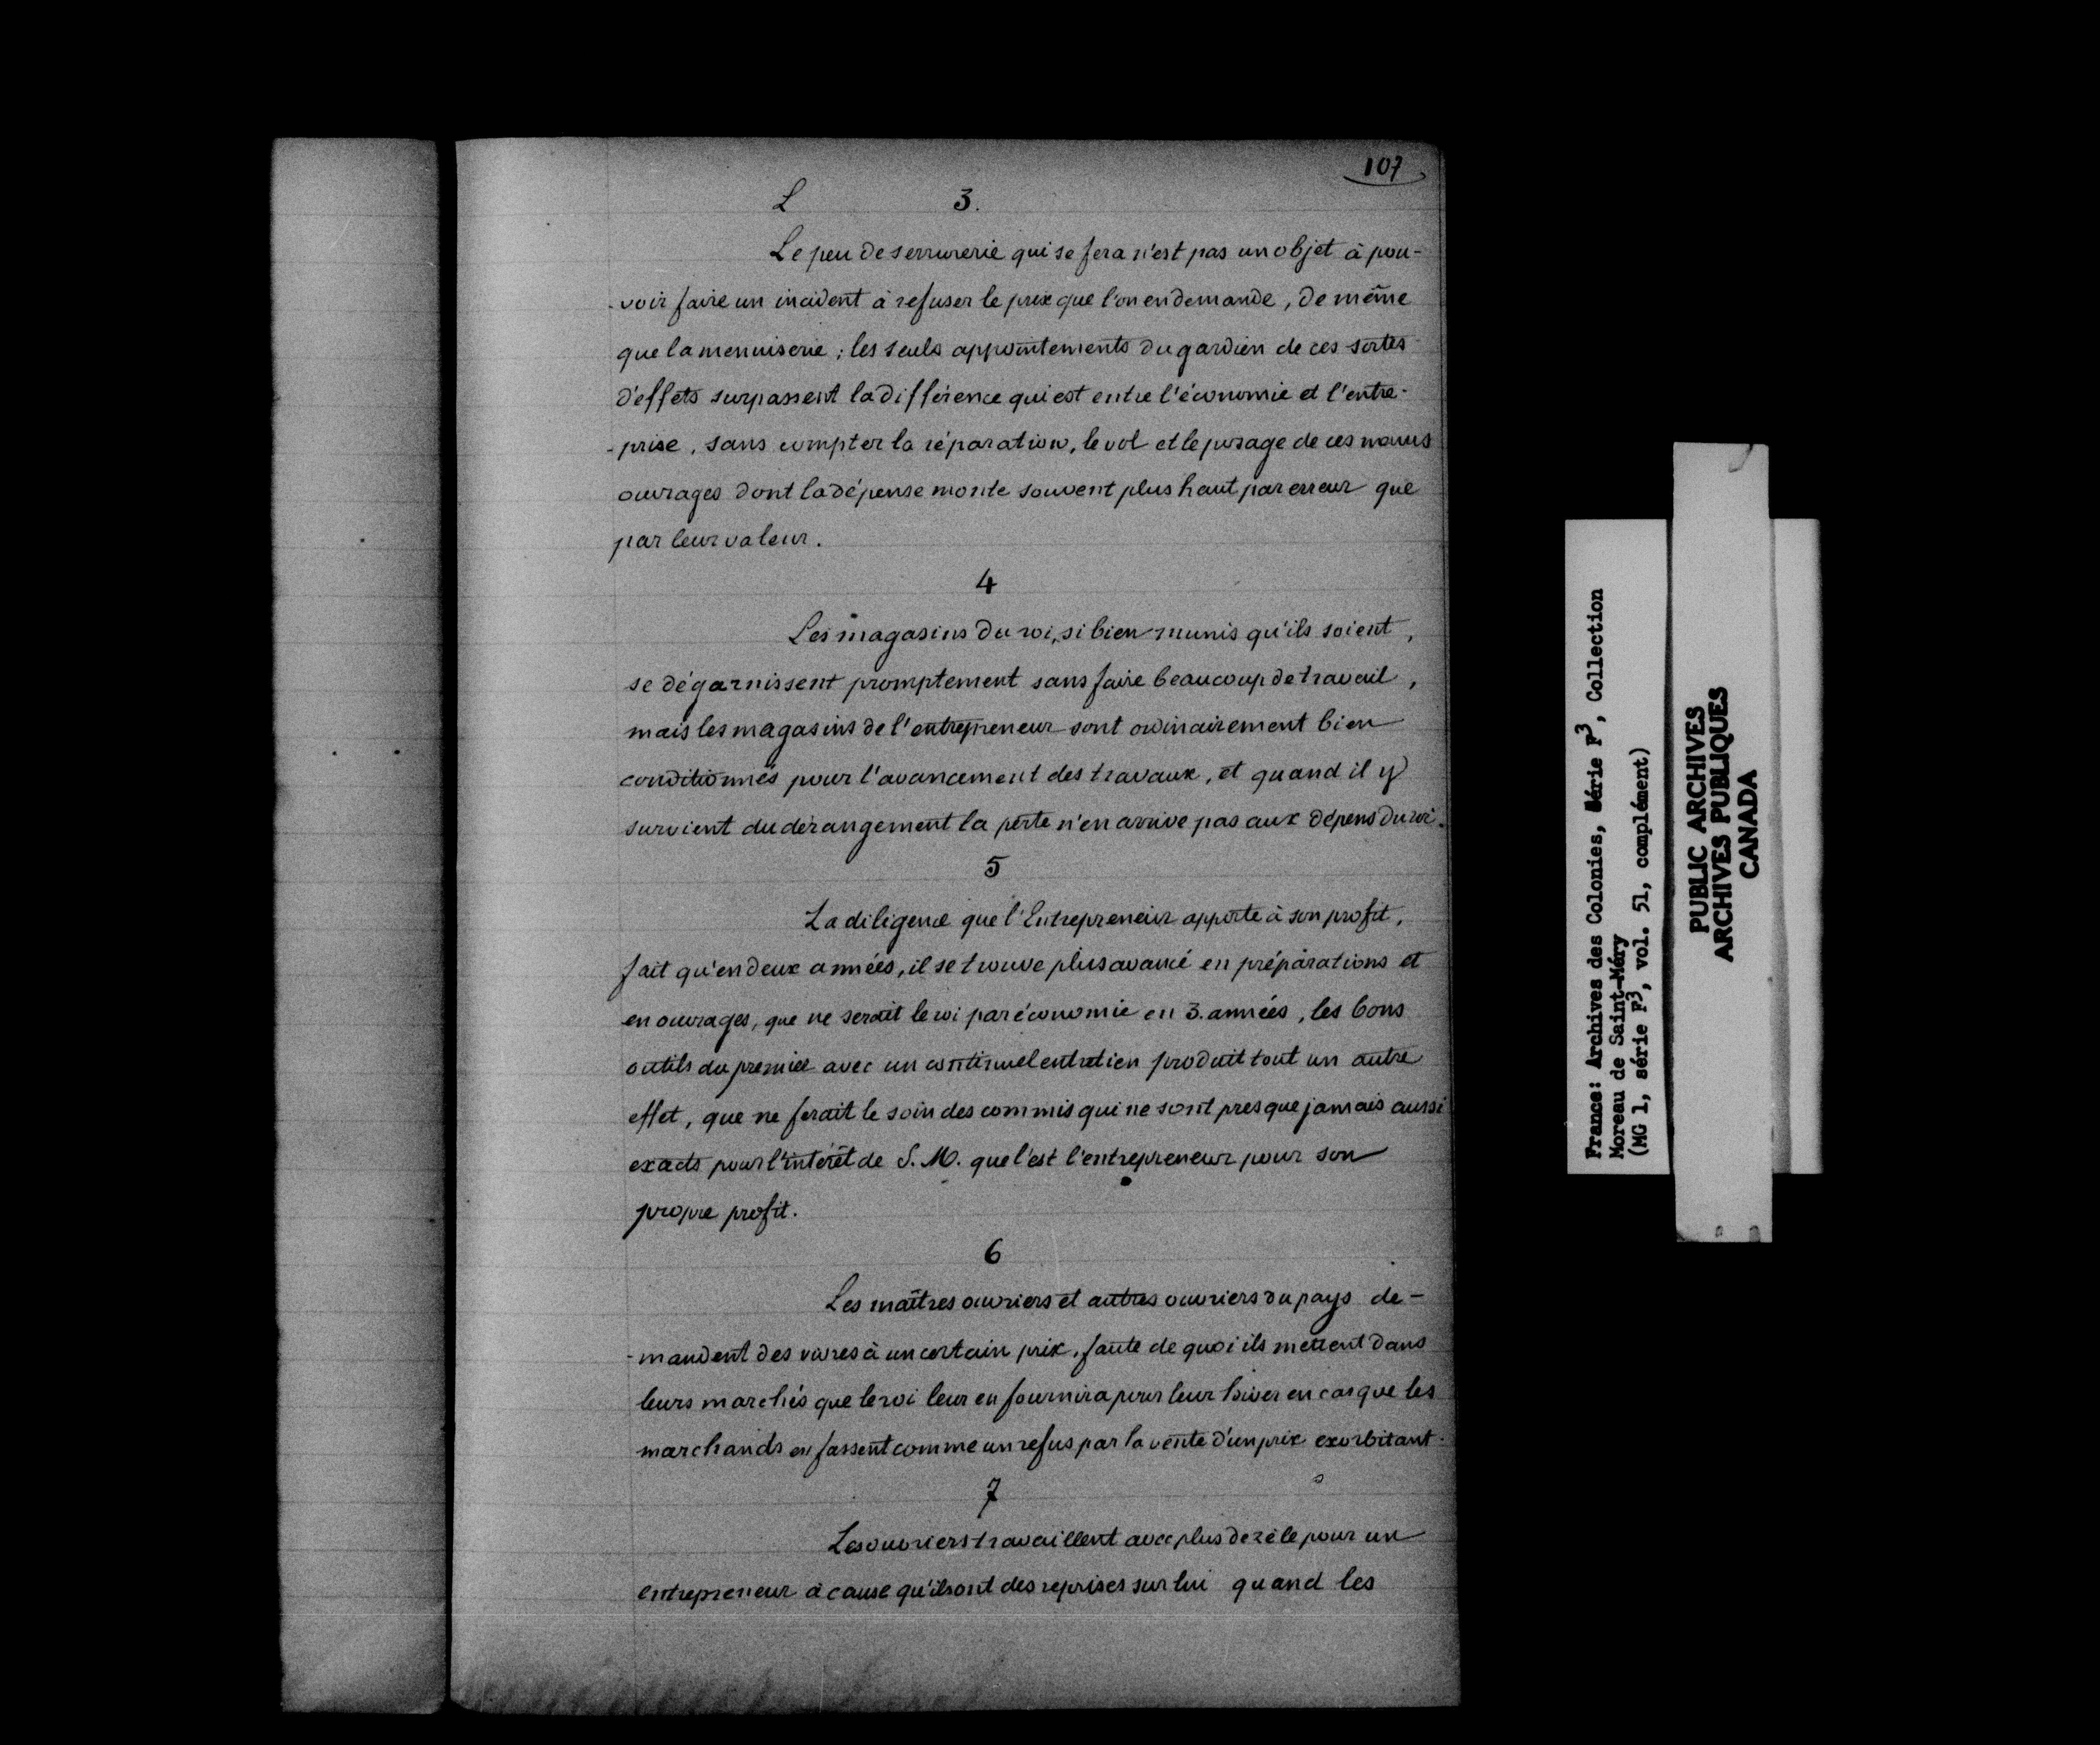 107
L 3.
Le peu de serrurerie qui se fera n'est pas un objet à pou-
-voir faire un incident à refuser le prix que l'on en demande, de même
que la menuiserie ; les seuls appointements du gardien de ces sortes
d'effets surpassent la différence qui est entre l'économie et l'entre-
-prise, sans compter la réparation, le vol et le posage de ces menus
ouvrages dont la dépense monte souvent plus haut par erreur que
par leur valeur.
4
Les magasins du roi, si bien munis qu'ils soient,
se dégarnissent promptement sans faire beaucoup de travail,
mais les magasins de l'entrepreneur sont ordinairement bien
conditionnés pour l'avancement des travaux, et quand il y
survient du dérangement la perte n'en arrive pas aux dépens du roi.
5
La diligence que l'Entrepreneur apporte à son profit,
fait qu'en deux années, il se trouve plus avancé en préparations et
en ouvrages, que ne serait le roi par économie en 3. années, les bons
outils du premier avec un continuel entretien produit tout un autre
effet, que ne ferait le soin des commis qui ne sont presque jamais aussi
exacts pour l'intérêt de S. M. que l'est l'entrepreneur pour son
propre profit.
6
Les maîtres ouvriers et autres ouvriers du pays de-
-mandent des vivres à un certain prix, faute de quoi ils mettent dans
leurs marchés que le roi leur en fournira pour leur hiver en cas que les
marchands en fassent comme un refus par la vente d'un prix exorbitant.
7
Les ouvriers travaillent avec plus de zèle pour un
entrepreneur à cause qu'ils ont des reprises sur lui quand les
France: Archives des Colonies, Série F3, Collection
Moreau de Saint-Méry
(MG 1, série F3, vol. 51, complément)
PUBLIC ARCHIVES
ARCHIVES PUBLIQUES
CANADA